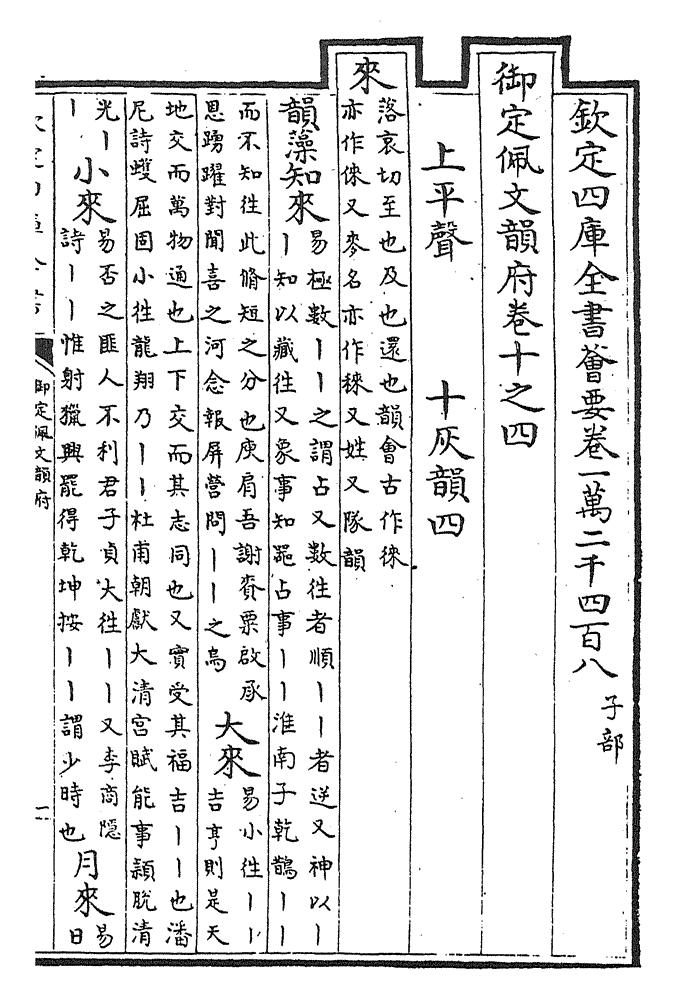 欽定四庫全書薈要卷一萬二千四百八 子部
御定佩文韻府卷十之四
上平聲 十灰韻四
來
洛哀切至也及也還也韻會古作徠
亦作倈又麥名亦作䅘又姓又隊韻
韻藻知來 易極數丨丨之謂占又數徃者順丨丨者逆又神以丨
丨知以藏徃又象事知噐占事丨丨淮南子乾鵲丨丨
而不知徃此脩短之分也庾肩吾謝賚粟啟承
恩踴躍對聞喜之河念報屏營問丨丨之烏
大來 易小徃丨丨
吉亨則是天
地交而萬物通也上下交而其志同也又實受其福吉丨丨也潘
尼詩蠖屈固小徃龍翔乃丨丨杜甫朝獻大清宮賦能事頴脫清
光丨
丨
小來 易否之匪人不利君子貞大徃丨丨又李商隱
詩丨丨惟射獵興罷得乾坤按丨丨謂少時也
月來 易
日
御定佩文韻府
一